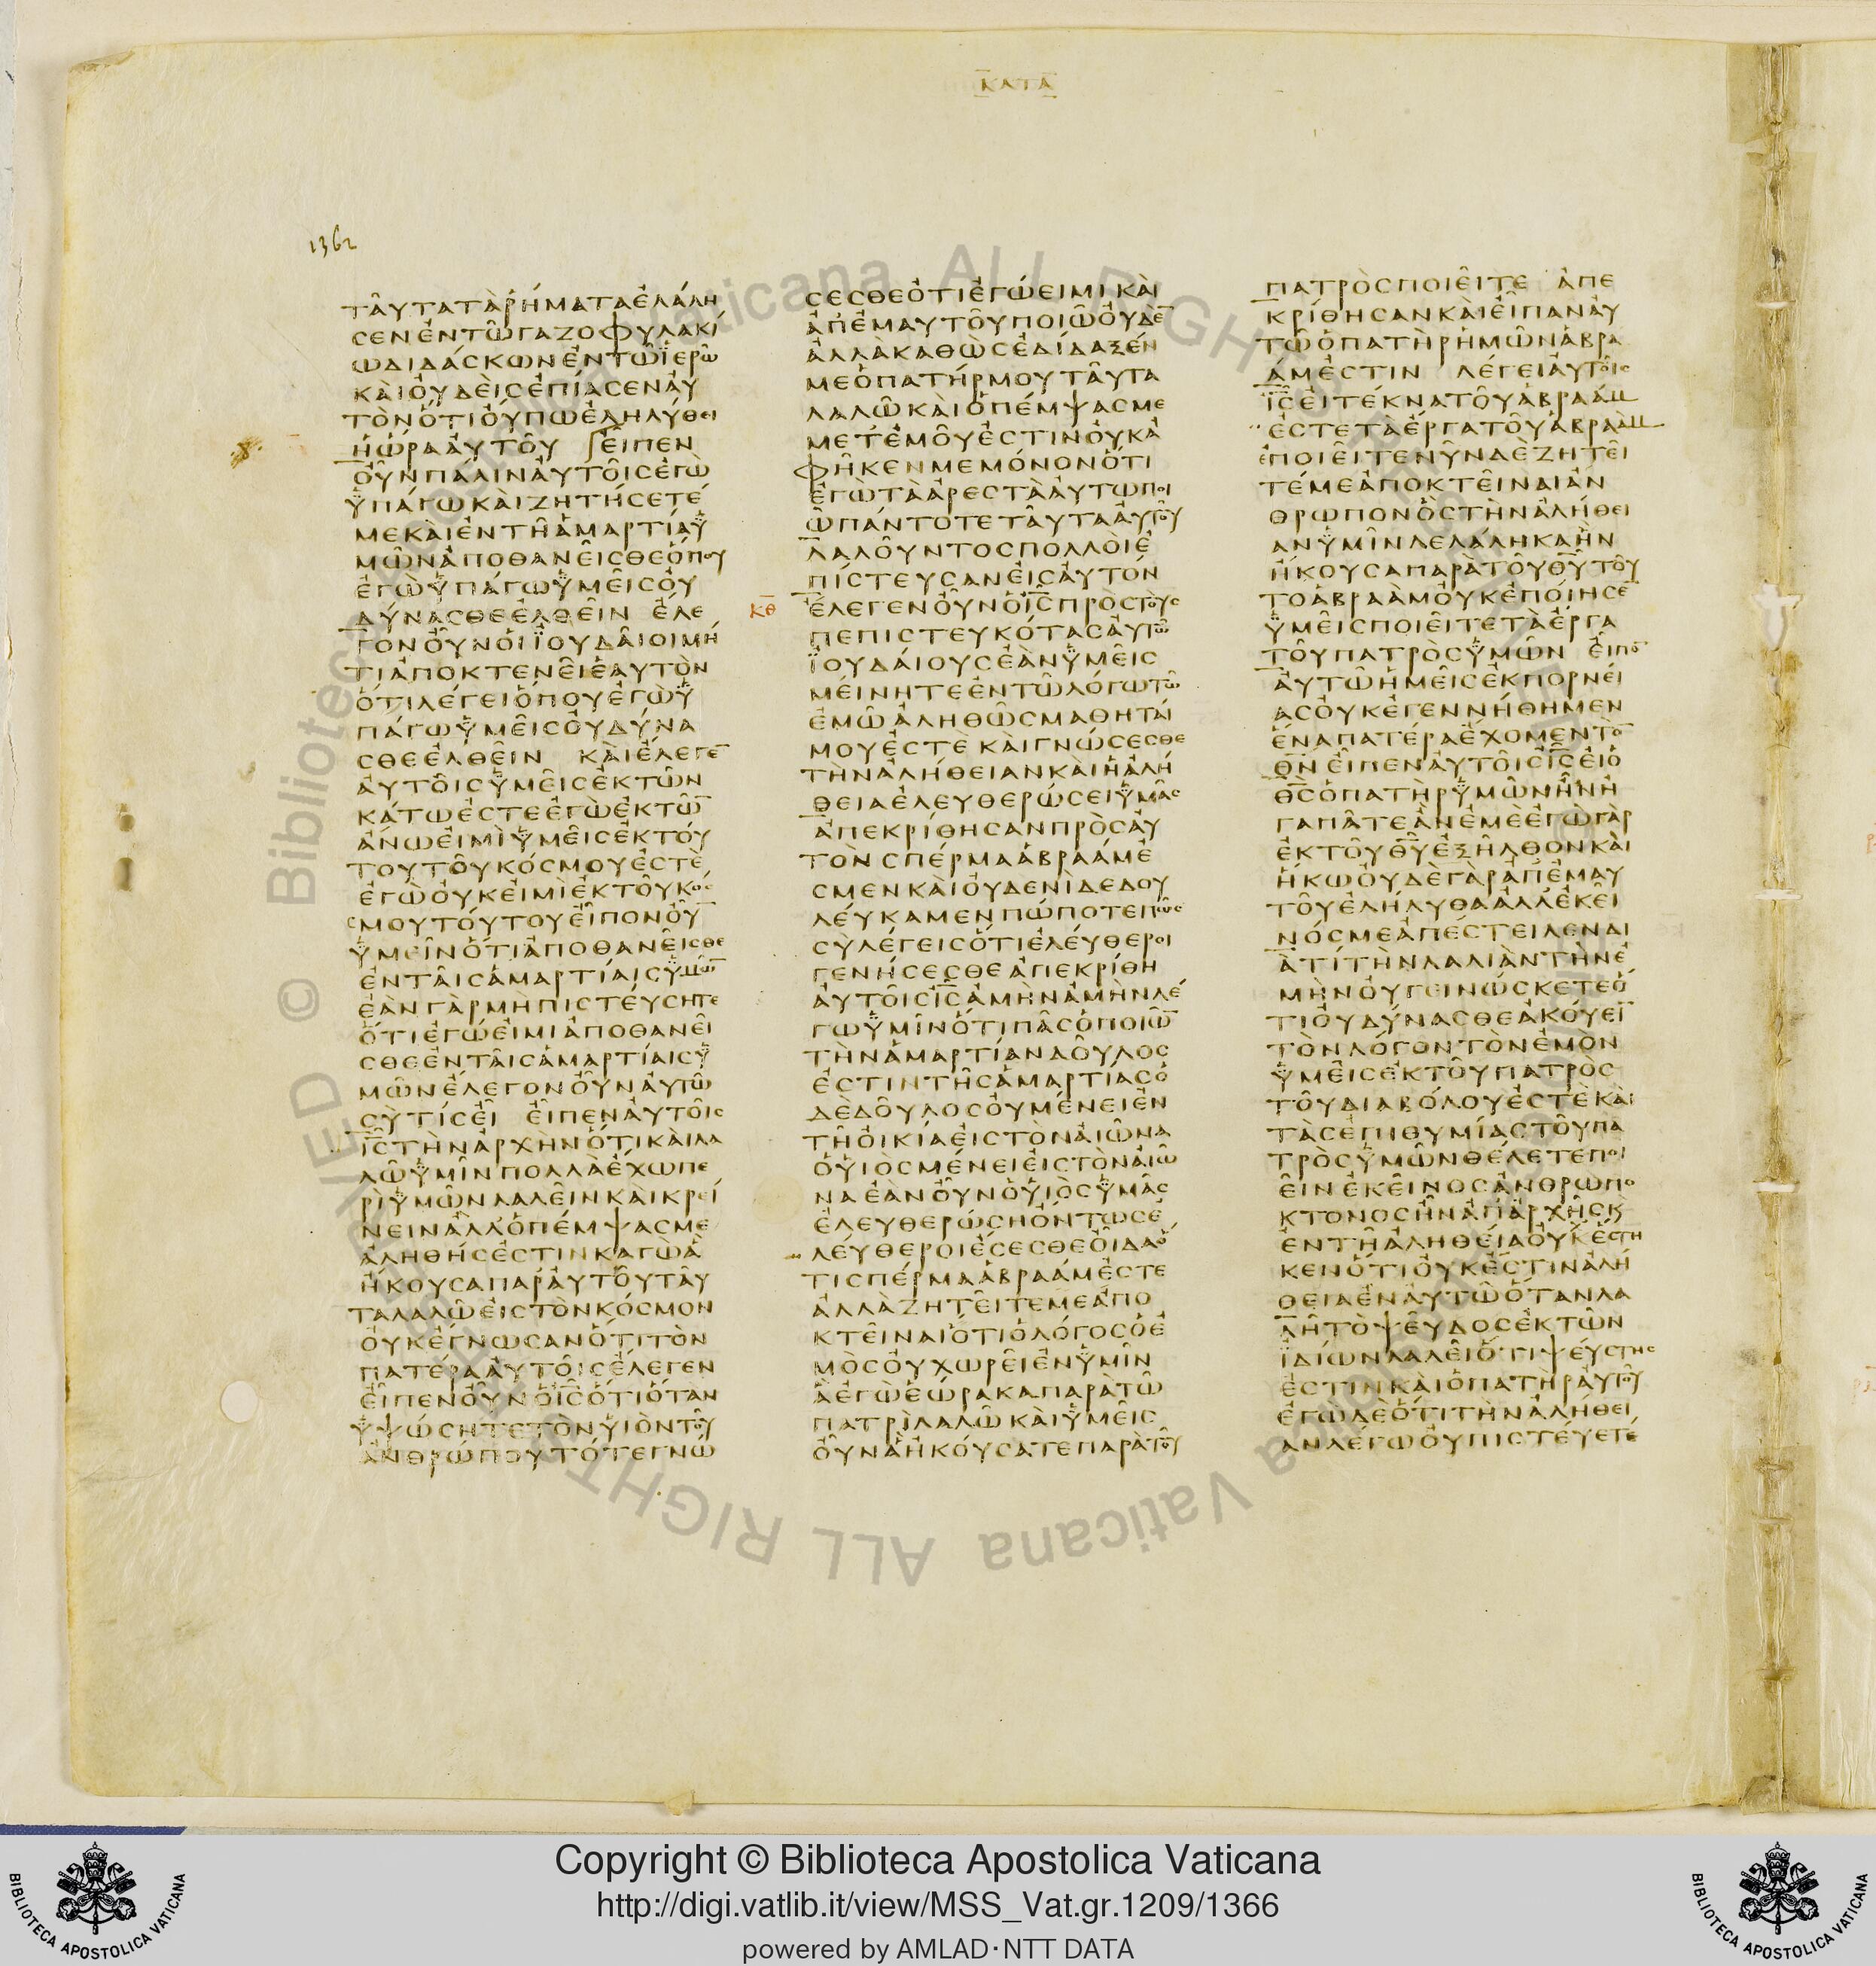 ΚΑΤΑ
1362
ΤΑΥΤΑΤΑΡΗΜΑΤΑΕΛΑΛΗ
ϹΕΝΕΝΤΩΓΑΖΟΦΥΛΑΚΙ
ΩΔΙΔΑϹΚΩΝΕΝΤΩΙΕΡΩ
ΚΑΙΟΥΔΕΙϹΕΠΙΑϹΕΝΑΥ
ΤΟΝΟΤΙΟΥΠΩΕΛΗΛΥΘΕΙ
ΗΩΡΑΑΥΤΟΥ ΕΙΠΕΝ
ΟΥΝΠΑΛΙΝΑΥΤΟΙϹΕΓΩ
ΥΠΑΓΩΚΑΙΖΗΤΗϹΕΤΕ
ΜΕΚΑΙΕΝΤΗΑΜΑΡΤΙΑΥ
ΜΩΝΑΠΟΘΑΝΕΙϹΘΕΟΠΟΥ
ΕΓΩΥΠΑΓΩΥΜΕΙϹΟΥ
ΔΥΝΑϹΘΕΕΛΘΕΙΝ ΕΛΕ
ΓΟΝΟΥΝΟΙΙΟΥΔΑΙΟΙΜΗ
ΤΙΑΠΟΚΤΕΝΕΙΕΑΥΤΟΝ
ΟΤΙΛΕΓΕΙΟΠΟΥΕΓΩΥ
ΠΑΓΩΥΜΕΙϹΟΥΔΥΝΑ
ϹΘΕΕΛΘΕΙΝ ΚΑΙΕΛΕΓΕ̅
ΑΥΤΟΙϹΥΜΕΙϹΕΚΤΩΝ
ΚΑΤΩΕϹΤΕΕΓΩΕΚΤΩ̅
ΑΝΩΕΙΜΙΥΜΕΙϹΕΚΤΟΥ
ΤΟΥΤΟΥΚΟϹΜΟΥΕϹΤΕ
ΕΓΩΟΥΚΕΙΜΙΕΚΤΟΥΚΟ
ϹΜΟΥΤΟΥΤΟΥΕΙΠΟΝΟΥ̅
ΥΜΕΙΝΟΤΙΑΠΟΘΑΝΕΙϹΘΕ
ΕΝΤΑΙϹΑΜΑΡΤΙΑΙϹΥΜΩ̅
ΕΑΝΓΑΡΜΗΠΙϹΤΕΥϹΗΤΕ
ΟΤΙΕΓΩΕΙΜΙΑΠΟΘΑΝΕΙ
ϹΘΕΕΝΤΑΙϹΑΜΑΡΤΙΑΙϹΥ
ΜΩΝΕΛΕΓΟΝΟΥΝΑΥΤΩ
ϹΥΤΙϹΕΙ ΕΙΠΕΝΑΥΤΟΙϹ
Ι̅Ϲ̅ΤΗΝΑΡΧΗΝΟΤΙΚΑΙΛΑ
ΛΩΥΜΙΝΠΟΛΛΑΕΧΩΠΕ
ΡΙΥΜΩΝΛΑΛΕΙΝΚΑΙΚΡΕΙ
ΝΕΙΝΑΛΛΟΠΕΜΨΑϹΜΕ
ΑΛΗΘΗϹΕϹΤΙΝΚΑΓΩΑ
ΗΚΟΥϹΑΠΑΡΑΥΤΟΥΤΑΥ
ΤΑΛΑΛΩΕΙϹΤΟΝΚΟϹΜΟΝ
ΟΥΚΕΓΝΩϹΑΝΟΤΙΤΟΝ
ΠΑΤΕΡΑΑΥΤΟΙϹΕΛΕΓΕΝ
ΕΙΠΕΝΟΥΝΟΙ̅Ϲ̅ΟΤΙΟΤΑΝ
ΥΨΩϹΗΤΕΤΟΝΥΙΟΝΤΟΥ
ΑΝΘΡΩΠΟΥΤΟΤΕΓΝΩ
ϹΕϹΘΕΟΤΙΕΓΩΕΙΜΙΚΑΙ
ΑΠΕΜΑΥΤΟΥΠΟΙΩΟΥΔΕ̅
ΑΛΛΑΚΑΘΩϹΕΔΙΔΑΞΕΝ
ΜΕΟΠΑΤΗΡΜΟΥΤΑΥΤΑ
ΛΑΛΩΚΑΙΟΠΕΜΨΑϹΜΕ
ΜΕΤΕΜΟΥΕϹΤΙΝΟΥΚΑ
ΦΗΚΕΝΜΕΜΟΝΟΝΟΤΙ
ΕΓΩΤΑΑΡΕϹΤΑΑΥΤΩΠΟΙ
ΩΠΑΝΤΟΤΕΤΑΥΤΑΑΥΤΟΥ
ΛΑΛΟΥΝΤΟϹΠΟΛΛΟΙΕ
ΠΙϹΤΕΥϹΑΝΕΙϹΑΥΤΟΝ
ΚΘ ΕΛΕΓΕΝΟΥΝΟΙ̅Ϲ̅ΠΡΟϹΤΟΥϹ
ΠΕΠΙϹΤΕΥΚΟΤΑϹΑΥΤΩ
ΙΟΥΔΑΙΟΥϹΕΑΝΥΜΕΙϹ
ΜΕΙΝΗΤΕΕΝΤΩΛΟΓΩΤΩ
ΕΜΩΑΛΗΘΩϹΜΑΘΗΤΑΙ
ΜΟΥΕϹΤΕ ΚΑΙΓΝΩϹΕϹΘΕ
ΤΗΝΑΛΗΘΕΙΑΝΚΑΙΗΑΛΗ
ΘΕΙΑΕΛΕΥΘΕΡΩϹΕΙΥΜΑϹ
ΑΠΕΚΡΙΘΗϹΑΝΠΡΟϹΑΥ
ΤΟΝϹΠΕΡΜΑΑΒΡΑΑΜΕ
ϹΜΕΝΚΑΙΟΥΔΕΝΙΔΕΔΟΥ
ΛΕΥΚΑΜΕΝΠΩΠΟΤΕΠΩϹ
ϹΥΛΕΓΕΙϹΟΤΙΕΛΕΥΘΕΡΟΙ
ΓΕΝΗϹΕϹΘΕΑΠΕΚΡΙΘΗ
ΑΥΤΟΙϹΙ̅Ϲ̅ΑΜΗΝΑΜΗΝΛΕ
ΓΩΥΜΙΝΟΤΙΠΑϹΟΠΟΙΩ̅
ΤΗΝΑΜΑΡΤΙΑΝΔΟΥΛΟϹ
ΕϹΤΙΝΤΗϹΑΜΑΡΤΙΑϹΟ
ΔΕΔΟΥΛΟϹΟΥΜΕΝΕΙΕΝ
ΤΗΟΙΚΙΑΕΙϹΤΟΝΑΙΩΝΑ
ΟΥΙΟϹΜΕΝΕΙΕΙϹΤΟΝΑΙΩ
ΝΑΕΑΝΟΥΝΟΥΙΟϹΥΜΑϹ
ΕΛΕΥΘΕΡΩϹΗΟΝΤΩϹΕ
ΛΕΥΘΕΡΟΙΕϹΕϹΘΕΟΙΔΑΟ
ΤΙϹΠΕΡΜΑΑΒΡΑΑΜΕϹΤΕ
ΑΛΛΑΖΗΤΕΙΤΕΜΕΑΠΟ
ΚΤΕΙΝΑΙΟΤΙΟΛΟΓΟϹΟΕ
ΜΟϹΟΥΧΩΡΕΙΕΝΥΜΙΝ
ΑΕΓΩΕΩΡΑΚΑΠΑΡΑΤΩ
ΠΑΤΡΙΛΑΛΩΚΑΙΥΜΕΙϹ
ΟΥΝΑΗΚΟΥϹΑΤΕΠΑΡΑΤΟΥ
ΠΑΤΡΟϹΠΟΙΕΙΤΕ ΑΠΕ
ΚΡΙΘΗϹΑΝΚΑΙΕΙΠΑΝΑΥ
ΤΩΟΠΑΤΗΡΗΜΩΝΑΒΡΑ
ΑΜΕϹΤΙΝ ΛΕΓΕΙΑΥΤΟΙϹ
Ι̅Ϲ̅ΕΙΤΕΚΝΑΤΟΥΑΒΡΑΑΜ
ΕϹΤΕΤΑΕΡΓΑΤΟΥΑΒΡΑΑΜ
ΠΟΙΕΙΤΕΝΥΝΔΕΖΗΤΕΙ
ΤΕΜΕΑΠΟΚΤΕΙΝΑΙΑΝ
ΘΡΩΠΟΝΟϹΤΗΝΑΛΗΘΕΙ
ΑΝΥΜΙΝΛΕΛΑΛΗΚΑΗΝ
ΗΚΟΥϹΑΠΑΡΑΤΟΥΘ̅Υ̅ΤΟΥ
ΤΟΑΒΡΑΑΜΟΥΚΕΠΟΙΗϹΕ̅
ΥΜΕΙϹΠΟΙΕΙΤΕΤΑΕΡΓΑ
ΤΟΥΠΑΤΡΟϹΥΜΩΝ ΕΙΠΟ̅
ΑΥΤΩΗΜΕΙϹΕΚΠΟΡΝΕΙ
ΑϹΟΥΚΕΓΕΝΝΗΘΗΜΕΝ
ΕΝΑΠΑΤΕΡΑΕΧΟΜΕΝΤΟ̅
Θ̅Ν̅ΕΙΠΕΝΑΥΤΟΙϹΙ̅Ϲ̅ΕΙΟ
Θ̅Ϲ̅ΟΠΑΤΗΡΥΜΩΝΗΝΗ
ΓΑΠΑΤΕΑΝΕΜΕΕΓΩΓΑΡ
ΕΚΤΟΥΘ̅Υ̅ΕΞΗΛΘΟΝΚΑΙ
ΗΚΩΟΥΔΕΓΑΡΑΠΕΜΑΥ
ΤΟΥΕΛΗΛΥΘΑΑΛΛΕΚΕΙ
ΝΟϹΜΕΑΠΕϹΤΕΙΛΕΝΔΙ
ΑΤΙΤΗΝΛΑΛΙΑΝΤΗΝΕ
ΜΗΝΟΥΓΕΙΝΩϹΚΕΤΕΟ
ΤΙΟΥΔΥΝΑϹΘΕΑΚΟΥΕΙ̅
ΤΟΝΛΟΓΟΝΤΟΝΕΜΟΝ
ΥΜΕΙϹΕΚΤΟΥΠΑΤΡΟϹ
ΤΟΥΔΙΑΒΟΛΟΥΕϹΤΕΚΑΙ
ΤΑϹΕΠΙΘΥΜΙΑϹΤΟΥΠΑ
ΤΡΟϹΥΜΩΝΘΕΛΕΤΕΠΟΙ
ΕΙΝΕΚΕΙΝΟϹΑΝΘΡΩΠΟ
ΚΤΟΝΟϹΗΝΑΠΑΡΧΗϹΚ
ΕΝΤΗΑΛΗΘΕΙΑΟΥΚΕϹΤΗ
ΚΕΝΟΤΙΟΥΚΕϹΤΙΝΑΛΗ
ΘΕΙΑΕΝΑΥΤΩΟΤΑΝΛΑ
ΛΗΤΟΨΕΥΔΟϹΕΚΤΩΝ
ΙΔΙΩΝΛΑΛΕΙΟΤΙΨΕΥϹΤΗϹ
ΕϹΤΙΝΚΑΙΟΠΑΤΗΡΑΥΤΟΥ
ΕΓΩΔΕΟΤΙΤΗΝΑΛΗΘΕΙ
ΑΝΛΕΓΩΟΥΠΙϹΤΕΥΕΤΕ
Copyright © Biblioteca Apostolica Vaticana
http://digi.vatlib.it/view/MSS_Vat.gr.1209/1366
powered by AMLAD·NTT DATA
BIBLIOTECA APOSTOLICA VATICANA
BIBLIOTECA APOSTOLICA VATICANA